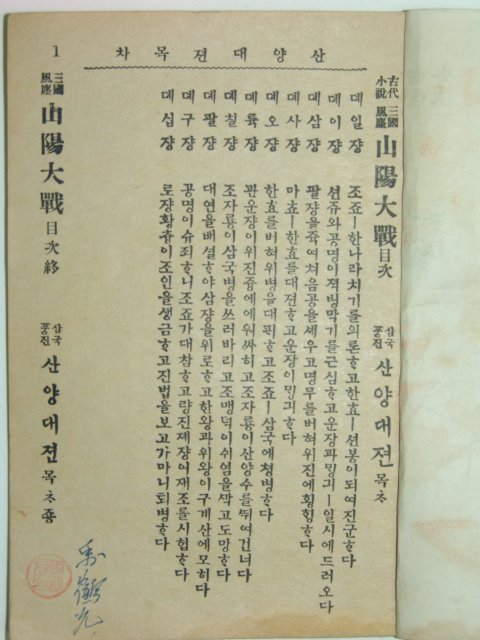 산양대젼목차
1
古代小說 三國風塵 山陽大戰 目次 삼국풍진 산양대젼 목ᄎᆞ
뎨일쟝 조죠ㅣ한나라치기를의론ᄒᆞ고한효ㅣ션봉이되여진군ᄒᆞ다
뎨이쟝 션쥬와공명이젹병막기를근심ᄒᆞ고운장과밍긔ㅣ일시에드러오다
뎨삼쟝 팔쟝을쥭여처음공을셰우고명무를버혀위진에횡힝ᄒᆞ다
뎨사쟝 마쵸ㅣ한효를대젼ᄒᆞ고운장이밍긔다
뎨오쟝 한효를버혀위병을대픠ᄒᆞ고조죠ㅣ삼국에쳥병ᄒᆞ다
뎨륙쟝 관운쟝이위진즁에에워싸히고조자룡이산양수를뛰여건너다
뎨칠쟝 조자룡이삼국병을쓰러바리고조맹덕이슈염을싹고도망ᄒᆞ다
뎨팔쟝 대연을배셜ᄒᆞ야삼쟝을위로ᄒᆞ고한왕과위왕이구계산에모히다
뎨구쟝 공명이슈죄ᄒᆞ니조죠가대참ᄒᆞ고량진졔쟝이재조를시험ᄒᆞ다
뎨십쟝 로쟝황츙이조인을생금ᄒᆞ고진법을보고가마니퇴병ᄒᆞ다
三國風塵 山陽大戰 目次終 삼국풍진 산양대젼 목ᄎᆞ죵